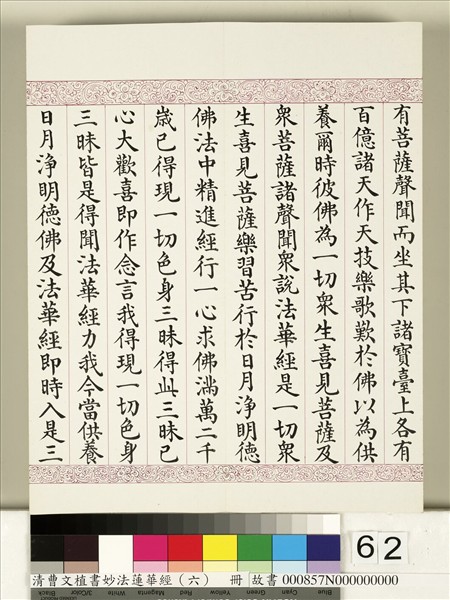 有菩薩聲聞而坐其下諸寶臺上各有
百億諸天作天技樂歌歎於佛以為供
養爾時彼佛為一切衆生喜見菩薩及
衆菩薩諸聲聞衆說法華經是一切衆
生喜見菩薩樂習苦行於日月淨明德
佛法中精進經行一心求佛滿萬二千
歲已得現一切色身三昧得此三昧已
心大歡喜即作念言我得現一切色身
三昧皆是得聞法華經力我今當供養
日月淨明德佛及法華經即時入是三
62
清曹文植書妙法蓮華經（六） 冊 故書 000857N000000000
Black 3/Color White Magenta